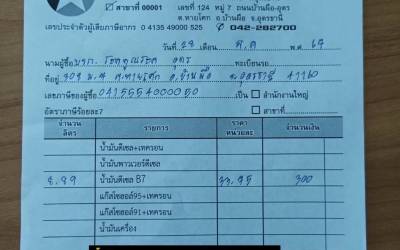 ☑ สาขาที่ 00001 เลขที่ 124 หมู่ 7 ถนนบ้านผือ-อุดร
ต.หายโศก อ.บ้านผือ จ.อุดรธานี
เลขประจำตัวผู้เสียภาษีอากร 0 4135 49000 525 042-282700
วันที่ 29 เดือน ต.ค พ.ศ 67
นามผู้ซื้อ บจก. โชคคูณโชค อุดร ทะเบียนรถ
ที่อยู่ 309 ม.4 ต.หายโศก อ.บ้านผือ จ.อุดรธานี 41160
เลขภาษีของผู้ซื้อ 0415554000050 เป็น ☐ สำนักงานใหญ่
อัตราภาษีร้อยละ7 ☐ สาขาที่
จำนวนลิตร รายการ ราคาหน่วยละ จำนวนเงิน
น้ำมันดีเซล+เทครอน
น้ำมันพาวเวอร์ดีเซล
8.89 น้ำมันดีเซล B7 33.75 300
แก๊สโซฮอล์95+เทครอน
แก๊สโซฮอล์91+เทครอน
น้ำมันเครื่อง